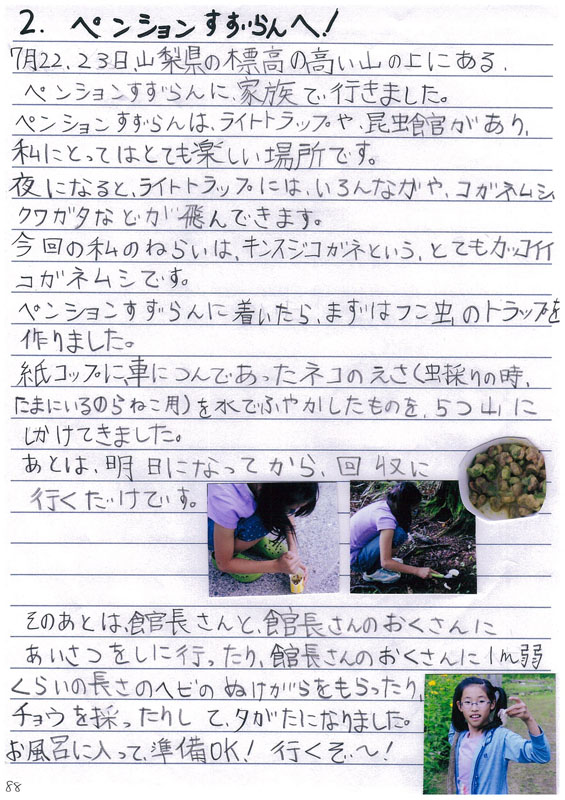 2. ペンションすずらんへ!
7月22、23日、山梨県の標高の高い山の上にある、
ペンションすずらんに、家族で行きました。
ペンションすずらんは、ライトトラップや、昆虫館があり、
私にとってはとても楽しい場所です。
夜になると、ライトトラップには、いろんなガや、コガネムシ、
クワガタなどが飛んできます。
今回の私のねらいは、キンスジコガネという、とてもカッコイイ
コガネムシです。
ペンションすずらんに着いたら、まずはフン虫のトラップを
作りました。
紙コップに、車につんであったネコのえさ(虫採りの時、
たまにいるのらねこ用)を水でふやかしたものを、5つ山に
しかけてきました。
あとは、明日になってから、回収に
行くだけです。
そのあとは、館長さんと、館長さんのおくさんに
あいさつをしに行ったり、館長さんのおくさんに1m弱
くらいの長さのヘビのぬけがらをもらったり、
チョウを採ったりして、夕がたになりました。
お風呂に入って、準備OK! 行くぞ〜!
88